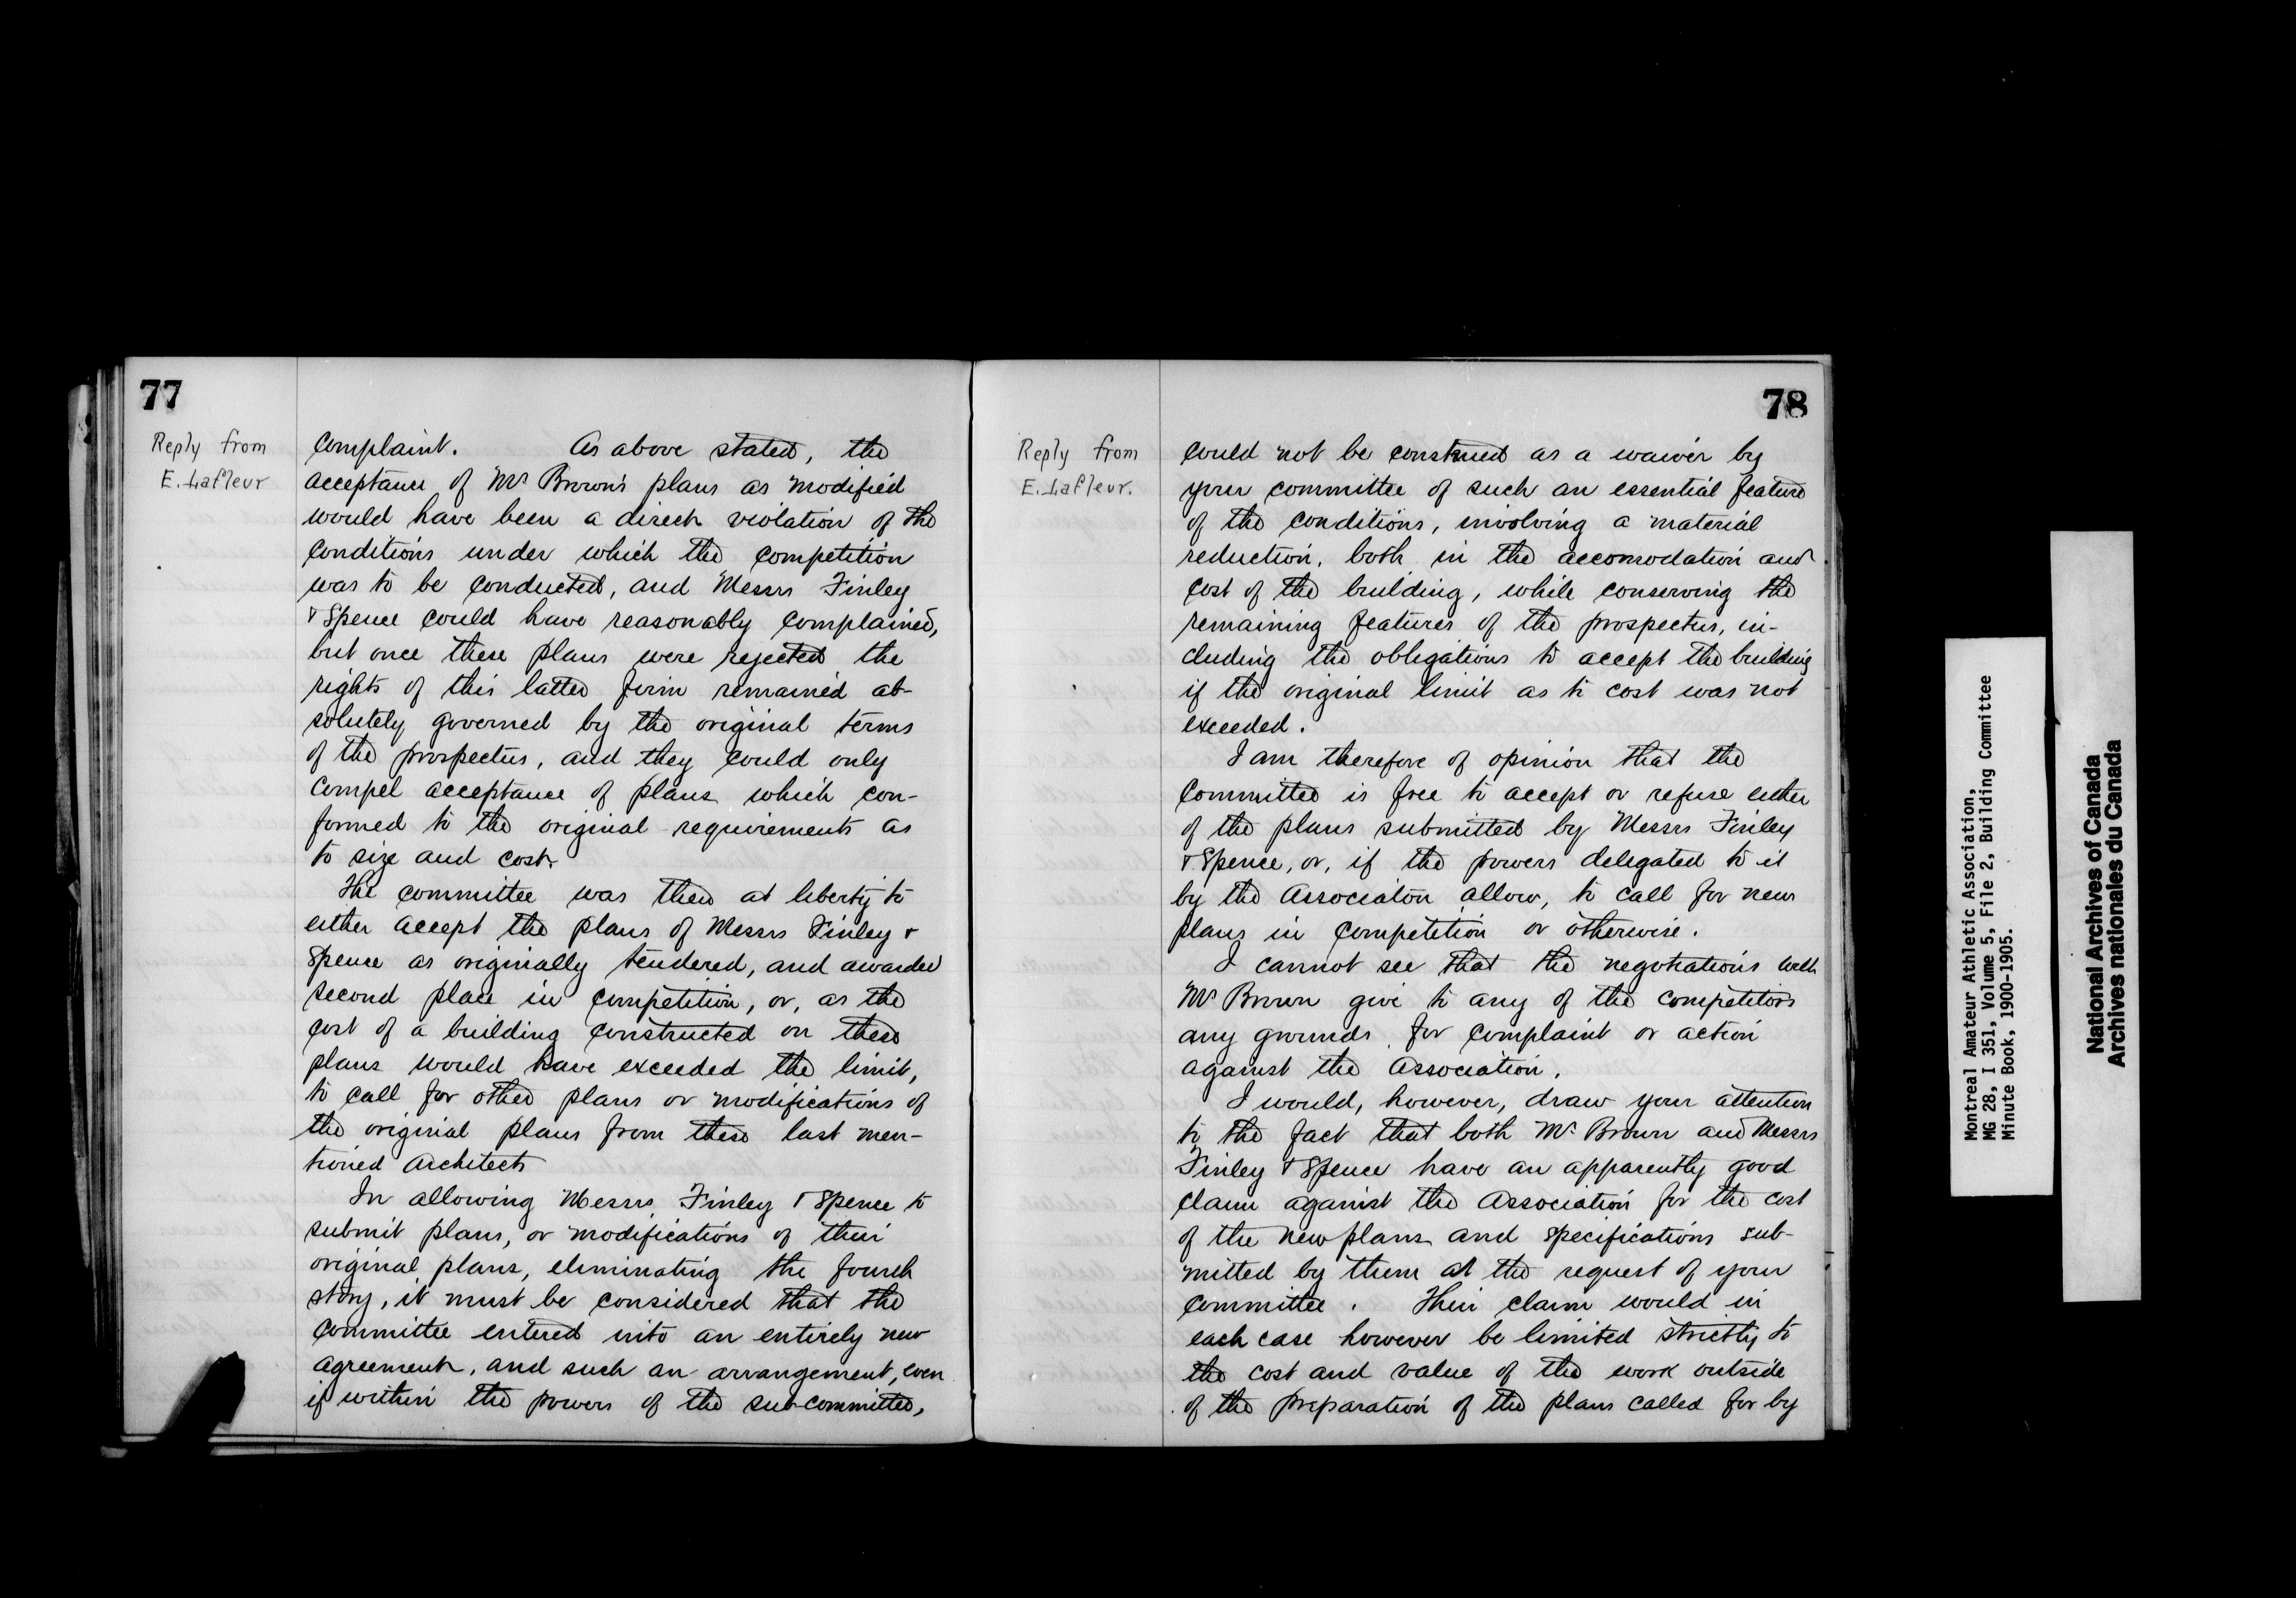 77
Reply from
E. Lafleur
complaint. As above stated, the
acceptance of Mr Brown's plans as modified
would have been a direct violation of the
conditions under which the competition
was to be conducted, and Messrs Finley
& Spence could have reasonably complained,
but once these plans were rejected the
rights of this latter firm remained ab-
solutely governed by the original terms
of the prospectus, and they could only
compel acceptance of plans which con-
formed to the original requirements as
to size and cost.
The committee was then at liberty to
either accept the plans of Messrs Finley &
Spence as originally tendered, and awarded
second place in competition, or, as the
cost of a building constructed on these
plans would have exceeded the limit,
to call for other plans or modifications of
the original plans from these last men-
tioned architects
In allowing Messrs. Finley & Spence to
submit plans, or modifications of their
original plans, eliminating the fourth
story, it must be considered that the
committee entered into an entirely new
agreement, and such an arrangement, even
if within the powers of the sub-committee,
78
Reply from
E. Lafleur.
could not be construed as a waiver by
your committee of such an essential feature
of the conditions, involving a material
reduction, both in the accomodation and
cost of the building, while conserving the
remaining features of the prospectus, in-
cluding the obligations to accept the building
if the original limit as to cost was not
exceeded.
I am therefore of opinion that the
committee is free to accept or refuse either
of the plans submitted by Messrs Finley
& Spence, or, if the powers delegated to it
by the Association allow, to call for new
plans in competition or otherwise.
I cannot see that the negotiations with
Mr Brown give to any of the competitors
any grounds for complaint or action
against the Association.
I would, however, draw your attention
to the fact that both Mr. Brown and Messrs
Finley & Spence have an apparently good
claim against the Association for the cost
of the new plans and specifications sub-
mitted by them at the request of your
committee. Their claim would in
each case however be limited strictly to
the cost and value of the work outside
of the preparation of the plans called for by
Montreal Amateur Athletic Association,
MG 28, I 351, Volume 5, File 2, Building Committee
Minute Book, 1900-1905.
National Archives of Canada
Archives nationales du Canada